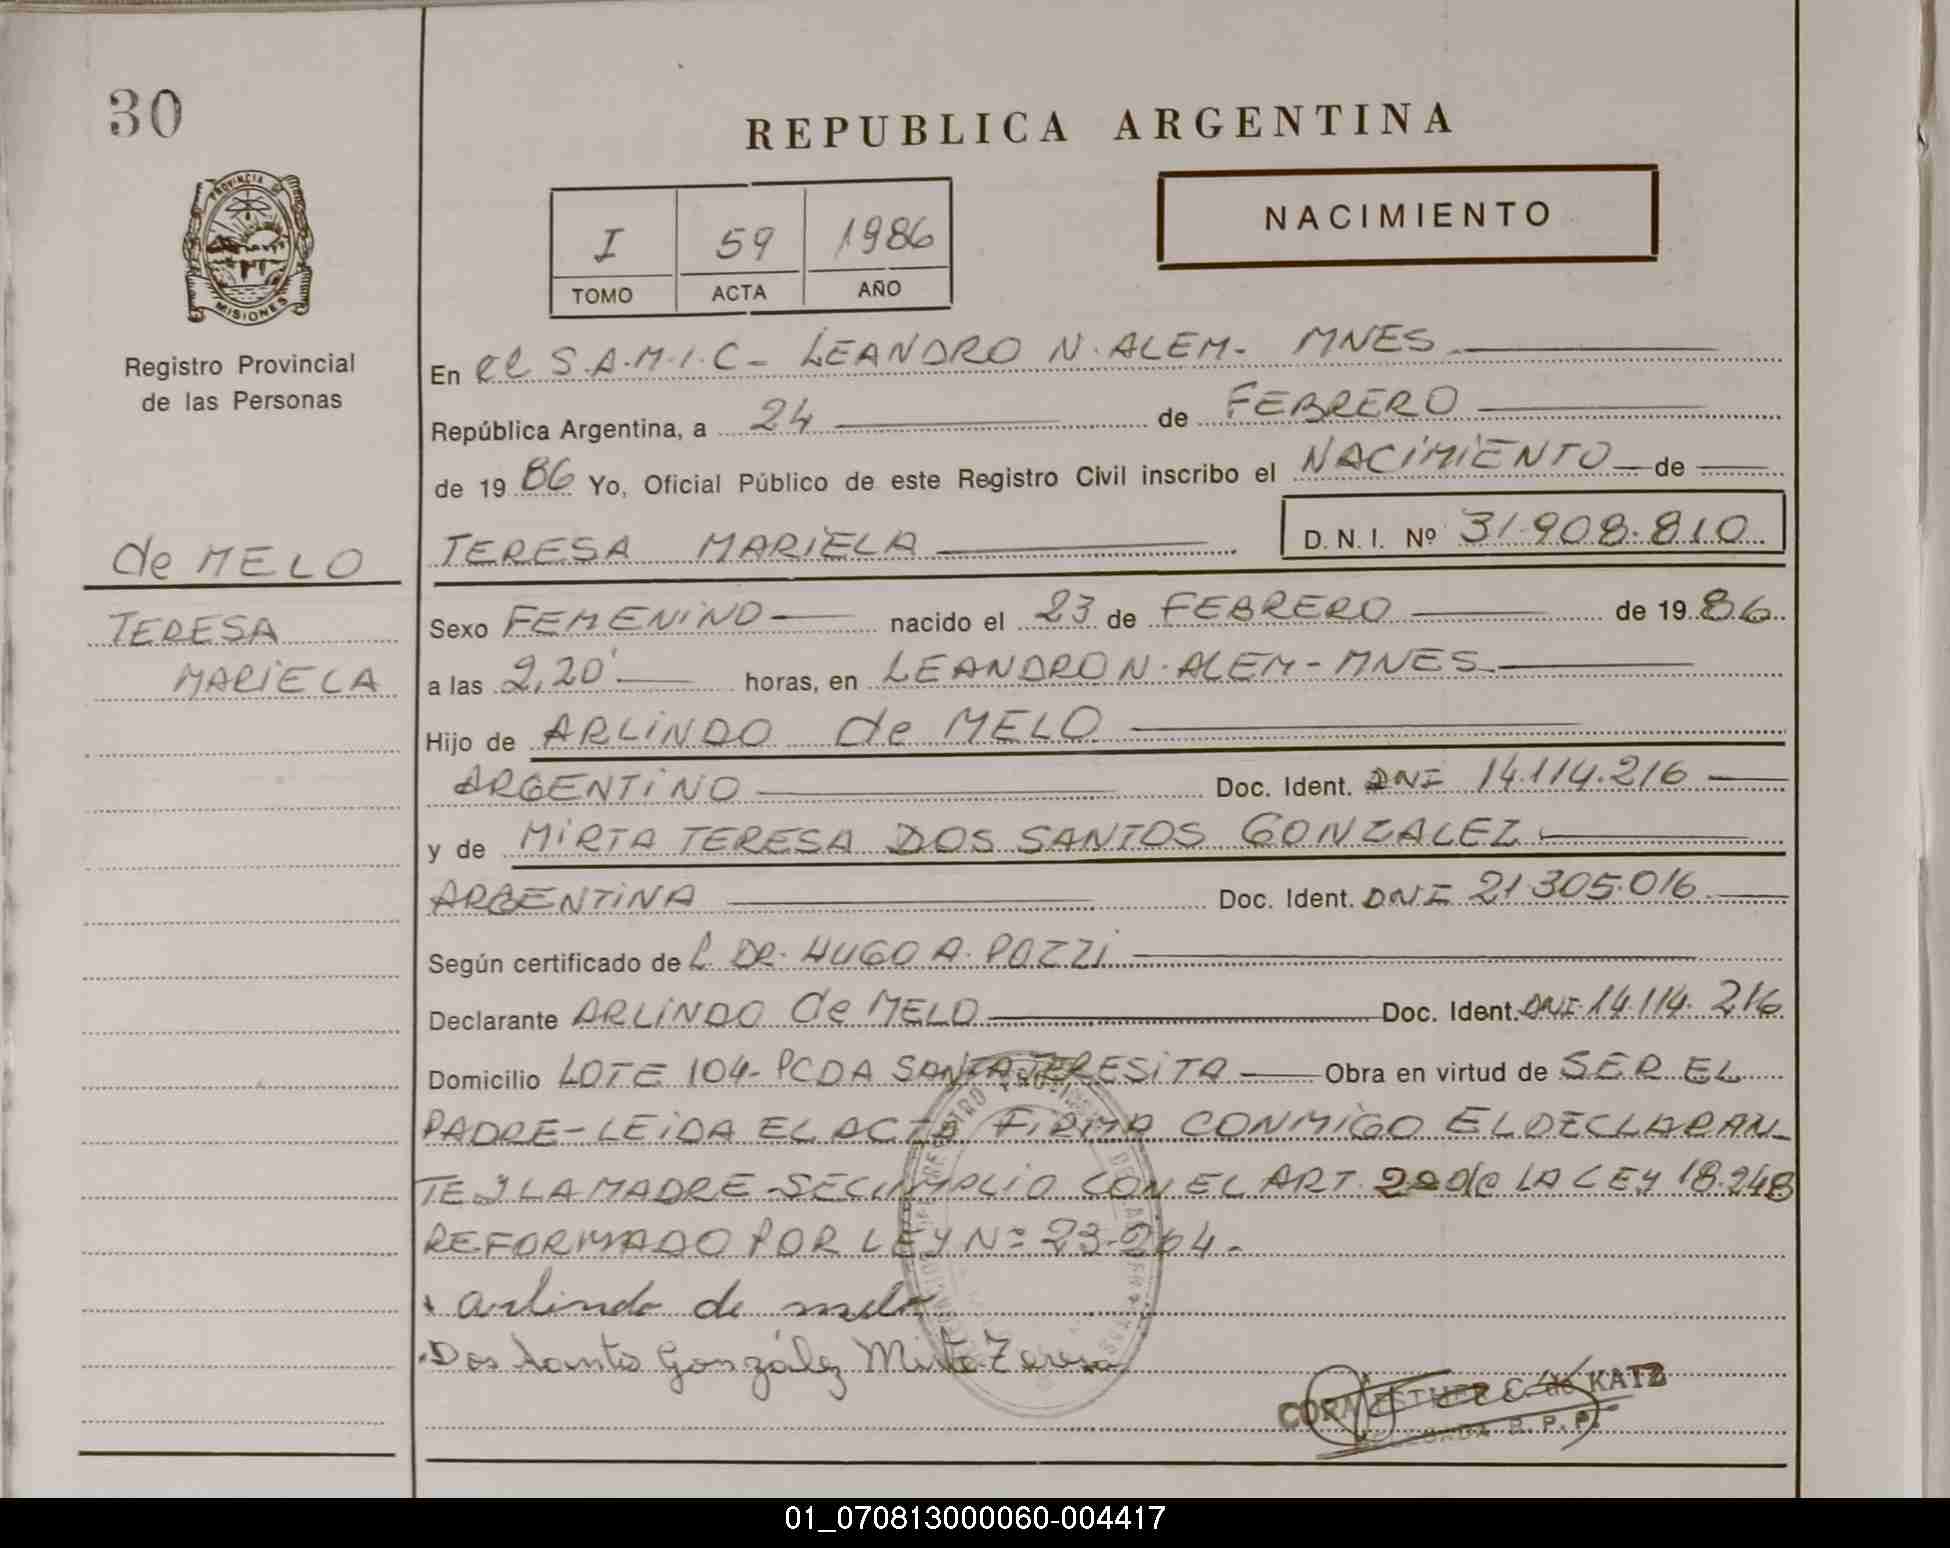 30
REPUBLICA ARGENTINA
PROVINCIA DE
MISIONES
NACIMIENTO
I 59 1986
TOMO ACTA AÑO
Registro Provincial
de las Personas
En el S.A.M.I.C - LEANDRO N. ALEM - MNES
República Argentina, a 24 de FEBRERO
de 1986 Yo, Oficial Público de este Registro Civil inscribo el NACIMIENTO de
de MELO
TERESA
MARIELA
TERESA MARIELA D.N.I. Nº 31.908.810
Sexo FEMENINO nacido el 23 de FEBRERO de 1986
a las 2,20' horas, en LEANDRO N. ALEM - MNES
Hijo de ARLINDO de MELO
ARGENTINO Doc. Ident. DNI 14.114.216
y de MIRTA TERESA DOS SANTOS GONZALEZ
ARGENTINA Doc. Ident. DNI 21.305.016
Según certificado de L DR. HUGO A. POZZI
Declarante ARLINDO de MELO Doc. Ident. DNI 14.114.216
Domicilio LOTE 104 - PCDA SANTA TERESITA Obra en virtud de SER EL
PADRE - LEIDA EL ACTA FIRMA CONMIGO EL DECLARAN
TE Y LA MADRE - SE CUMPLIO CON EL ART. 2º de LA LEY 18.248
REFORMADO POR LEY Nº 23.264.
arlindo de melo
Dos Santos González Mirta Teresa
CORA ESTHER C. de KATZ
R.P.P.
01_070813000060-004417